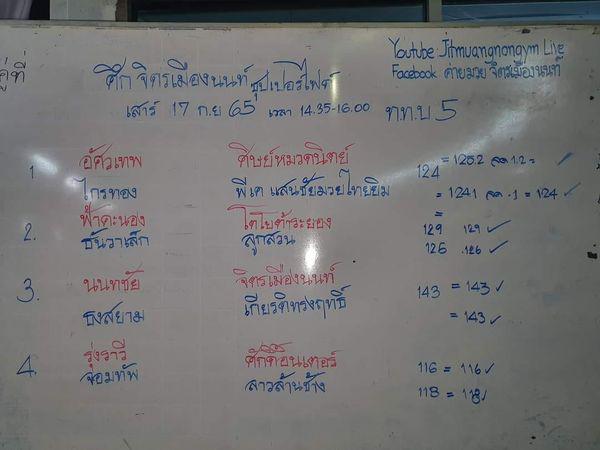 Youtube Jitmuangnongym Live
Facebook ค่ายมวย จิตรเมืองนนท์
คู่ที่
ศึก จิตรเมืองนนท์ ซุปเปอร์ไฟต์
เสาร์ 17 ก.ย 65 เวลา 14.35-16.00 ททบ 5
1 อัศวเทพ ศิษย์หมวดนิตย์ 124 = 125.2 ลด 1.2 = ✓
ไกรทอง พีเค แสนชัยมวยไทยยิม = 124.1 ลด .1 = 124 ✓
2. ฟ้าคะนอง โตโยต้าระยอง 129 129 ✓
ธันวาเล็ก ลูกสวน 126 .126 ✓
3. นนทชัย จิตรเมืองนนท์ 143 = 143 ✓
ธงสยาม เกียรติทรงฤทธิ์ = 143 ✓
4. รุ่งราวี 116 = 116 ✓
จอมทัพ ลาวล้านช้าง 118 = 118 ✓